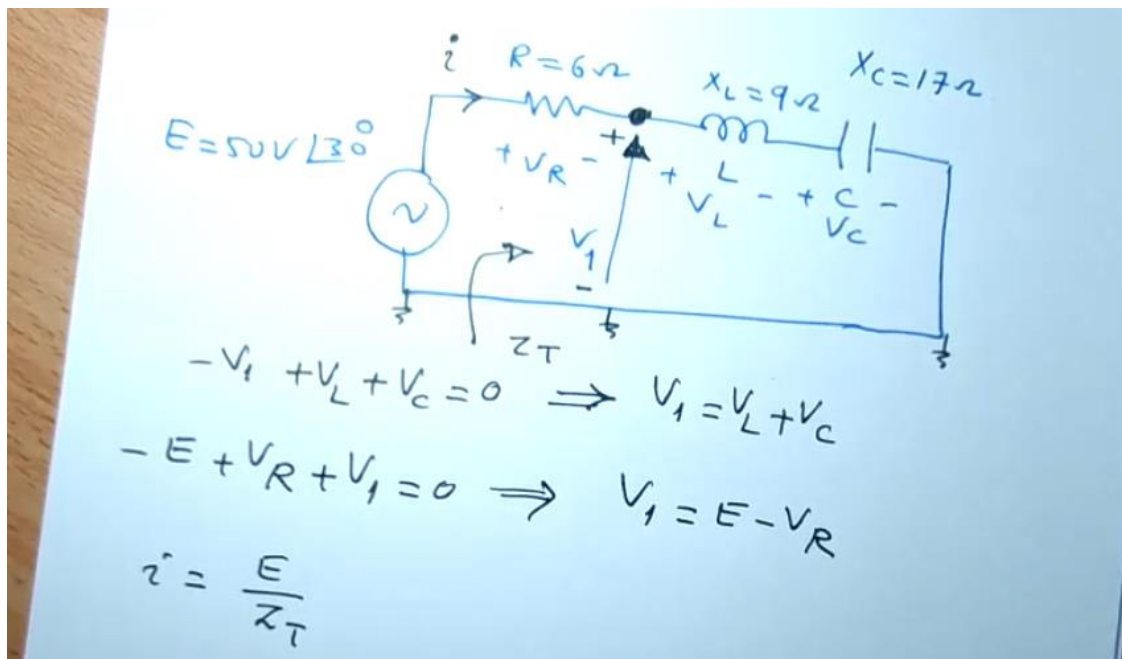 i
R=6Ω
X_L=9Ω
X_C=17Ω
E=50V∠30°
+ V_R -
+
V_1
-
+ L -
V_L
+ C -
V_C
Z_T
-V_1 +V_L +V_C =0 ⇒ V_1 =V_L +V_C
-E +V_R +V_1 =0 ⇒ V_1 =E-V_R
i = E/Z_T